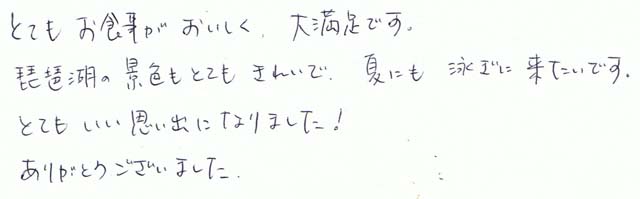 とても お食事が おいしく、大満足です。
琵琶湖の景色もとても きれいで、夏にも 泳ぎに 来たいです。
とても いい思い出になりました!
ありがとうございました。